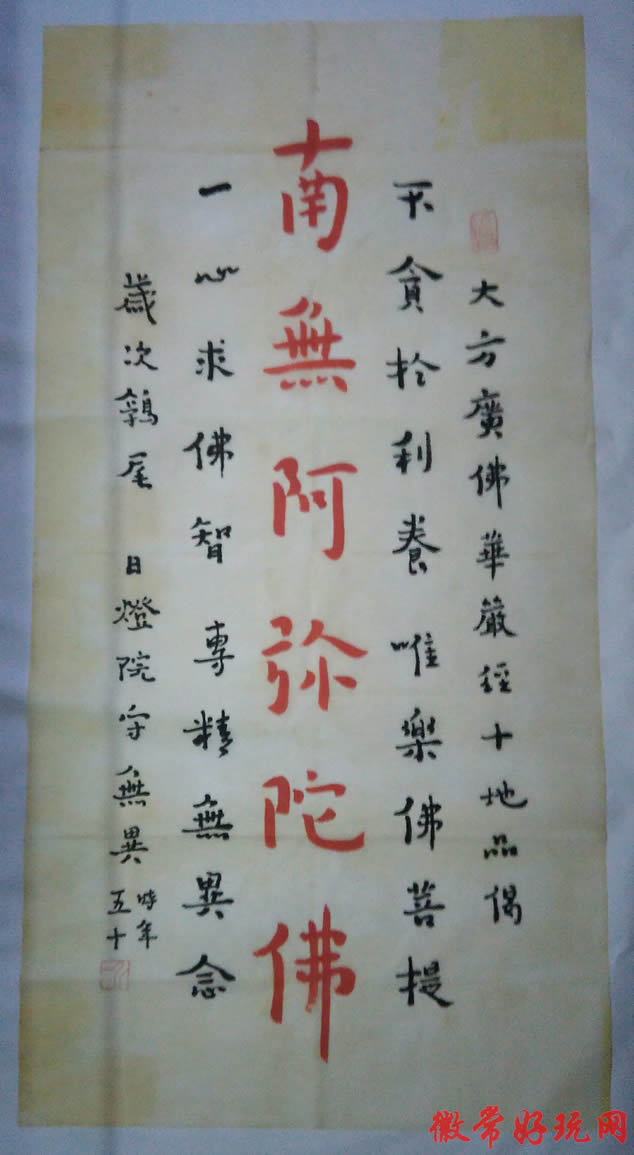 大方廣佛華嚴經十地品偈
不貪於利養唯樂佛菩提
南無阿弥陀佛
一心求佛智專精無異念
歲次鶉尾 日燈院守無異
時年
五十
徽常好玩网